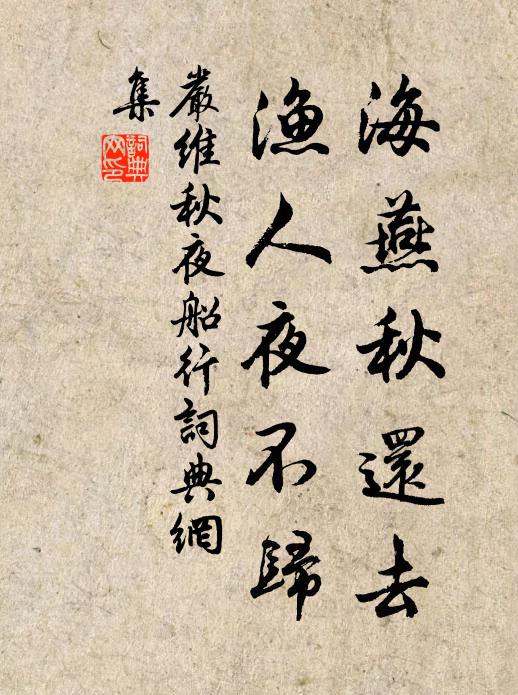 海燕秋還去
漁人夜不歸
嚴維秋夜船行詞典網
集
詞典
网印